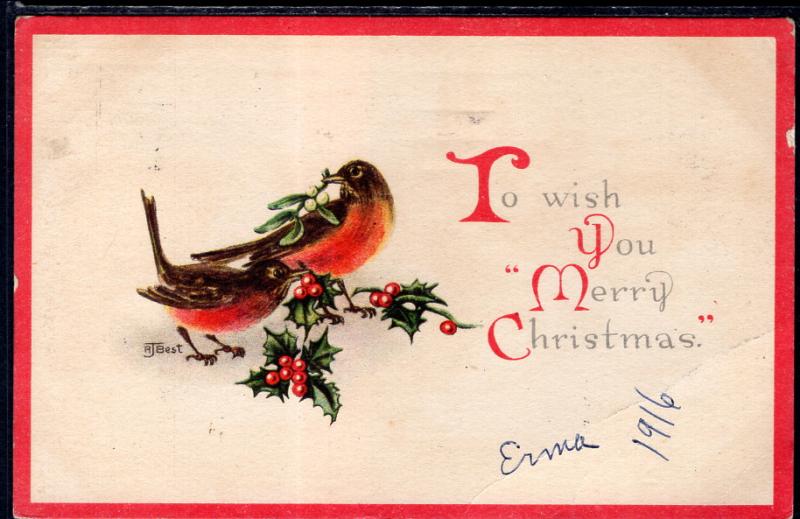 To wish
You
"Merry
Christmas."
RJBest
Erma
1916